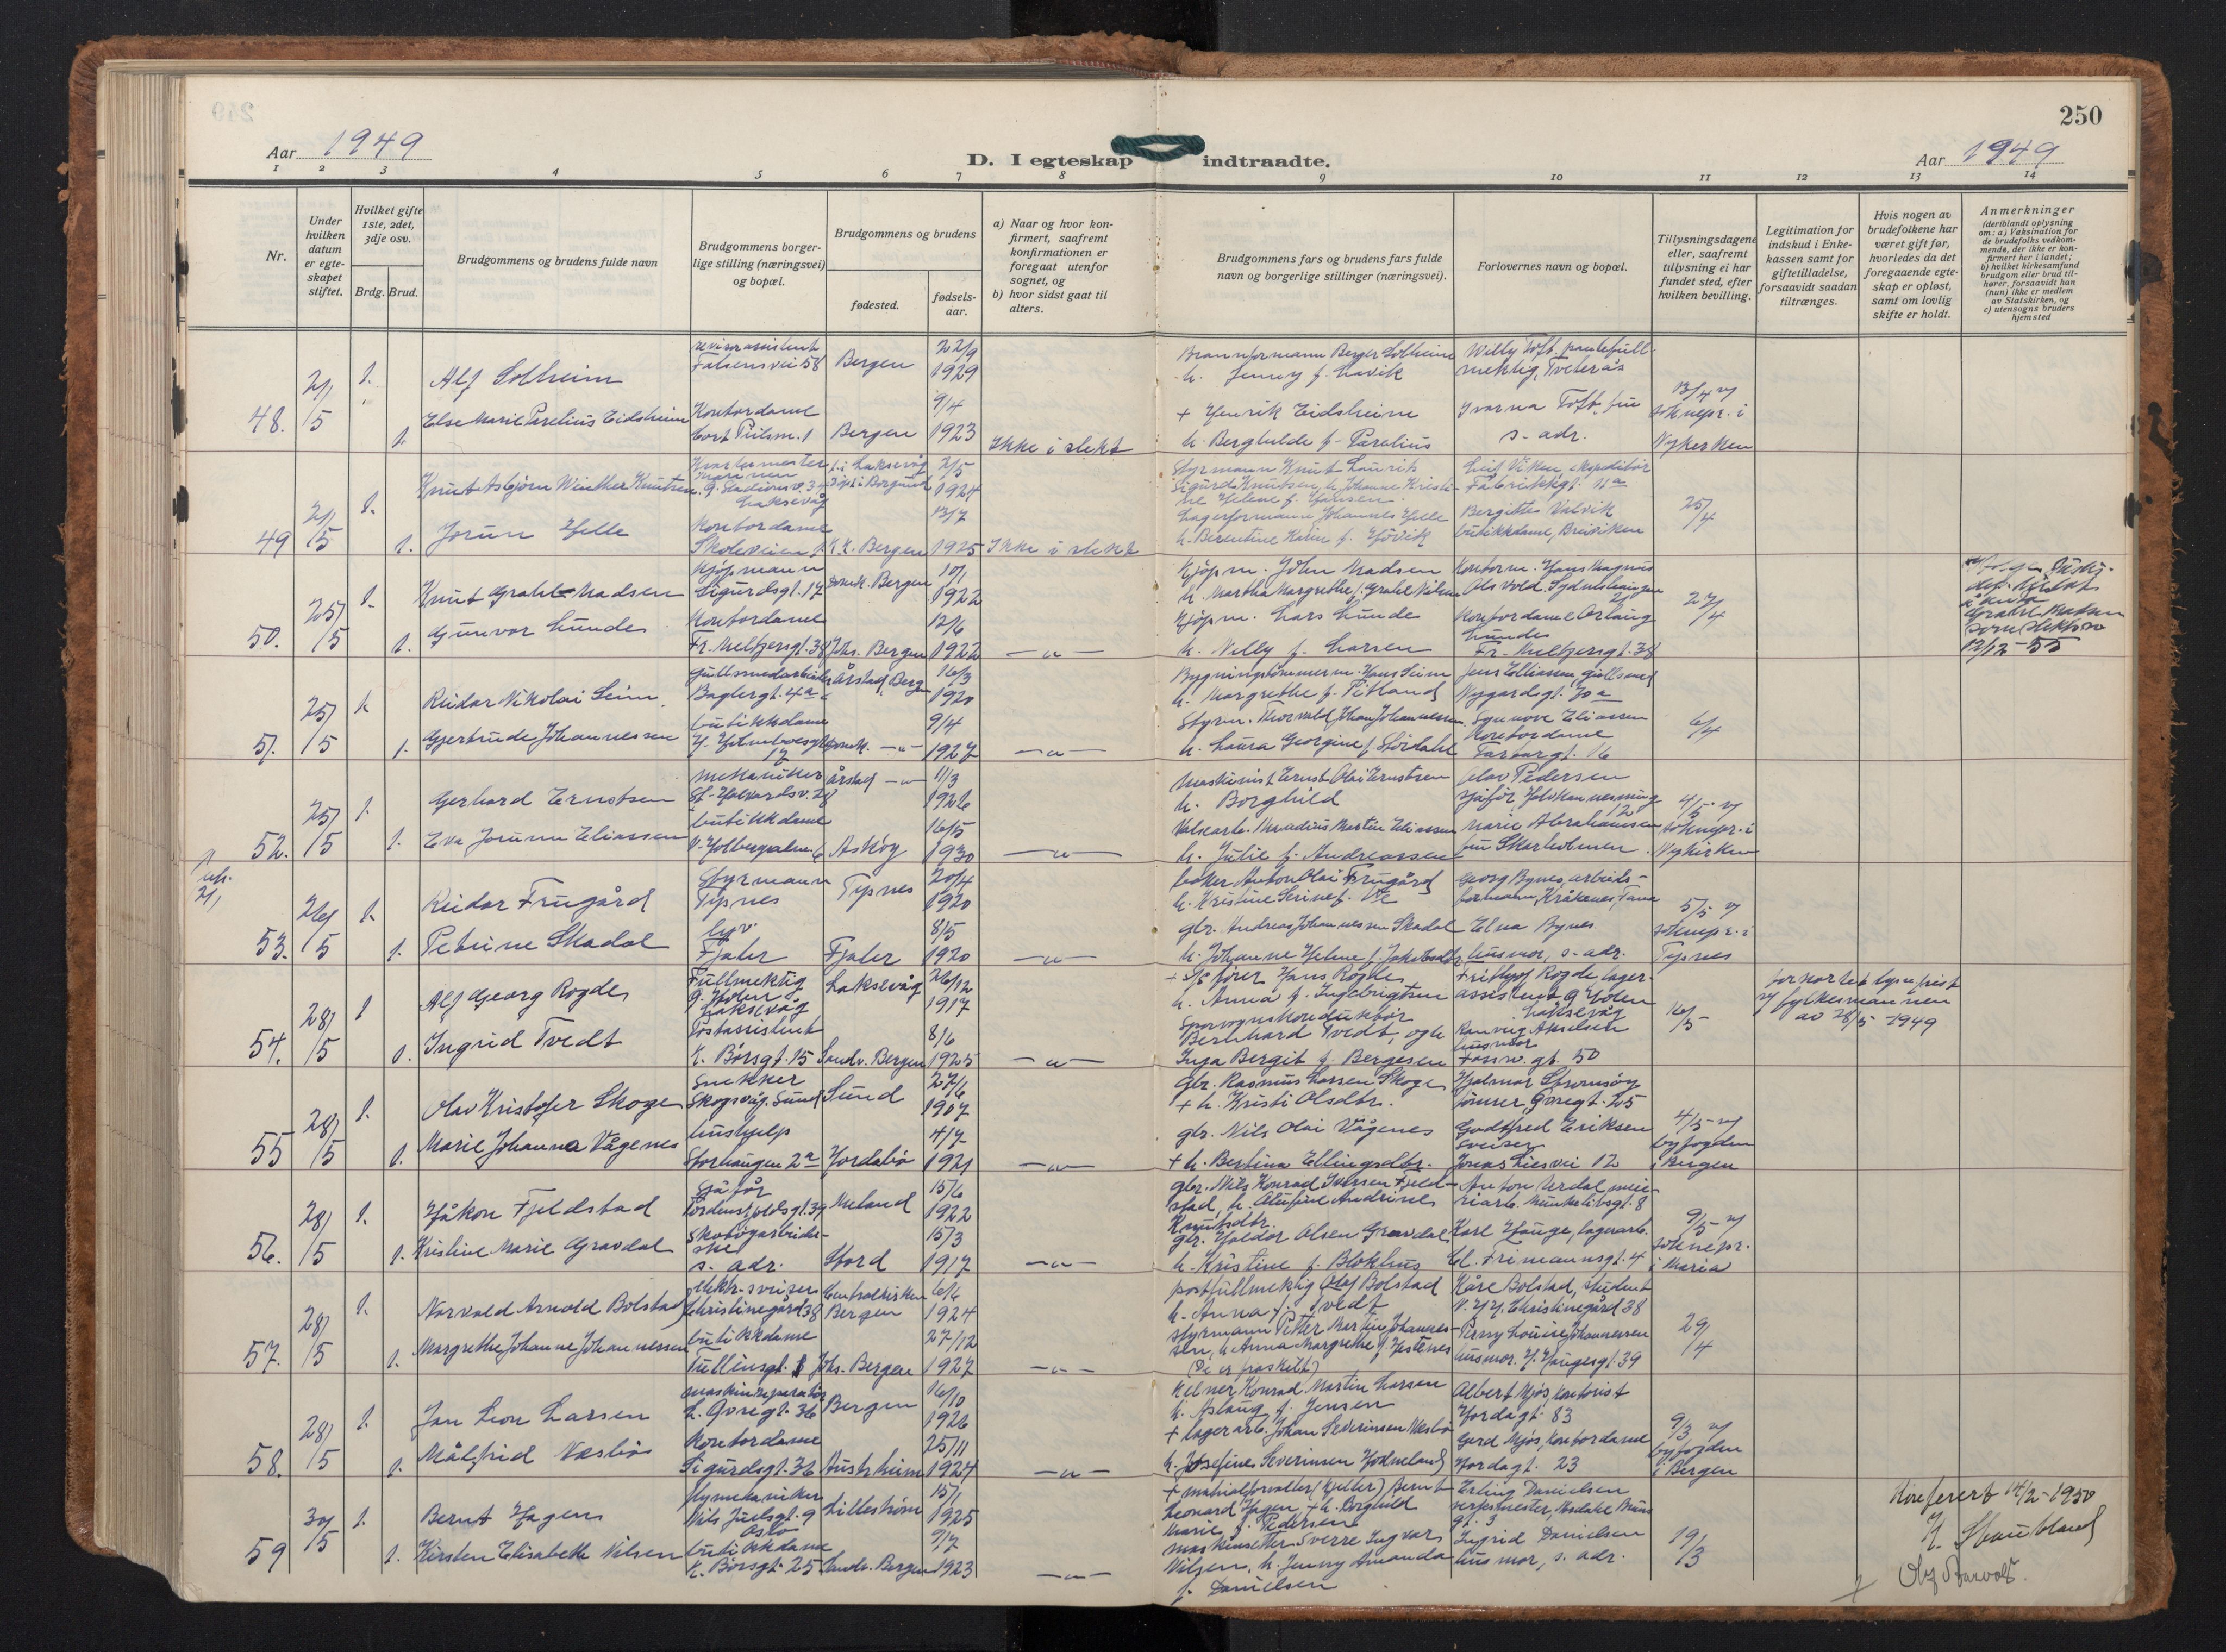 250
Aar 1949
D. I egteskap indtraadte.
Aar 1949
1 2 3 4 5 6 7 8 9 10 11 12 13 14
Nr.
Under hvilken datum er egteskapet stiftet.
Hvilket gifte 1ste, 2det, 3dje osv.
Brdg. Brud.
Brudgommens og brudens fulde navn
Brudgommens borgerlige stilling (næringsvei) og bopæl.
Brudgommens og brudens
fødested.
fødselsaar.
a) Naar og hvor konfirmert, saafremt konfirmationen er foregaat utenfor sognet, og
b) hvor sidst gaat til alters.
Brudgommens fars og brudens fars fulde navn og borgerlige stillinger (næringsvei).
Forlovernes navn og bopæl.
Tillysningsdagene eller, saafremt tillysning ei har fundet sted, efter hvilken bevilling.
Legitimation for indskud i Enkekassen samt for giftetilladelse, forsaavidt saadan tiltrænges.
Hvis nogen av brudefolkene har været gift før, hvorledes da det foregaaende egteskap er opløst, samt om lovlig skifte er holdt.
Anmerkninger
(deriblandt oplysning om: a) Vaksination for de brudefolks vedkommende, der ikke er konfirmert her i landet; b) hvilket kirkesamfund brudgom eller brud tilhører, forsaavidt han (hun) ikke er medlem av Statskirken, og c) utensogns bruders hjemsted
48. 21/5 1. Alf Solheim revisorassistent Falsensvei 58 Bergen 22/9 1929 Brannformann Berger Solheim h. Jenny f. Lavik Willy Toft
1. Else Marie Parelius Eidsheim Kontordame Cort Piilsm. 1 Bergen 9/4 1923 Ikke i slekt + Henrik Eidsheim h. Berghilde f. Parelius Toft fru s. adr. 13/4 v/ soknepr. i Nykirken
49 21/5 1. Knut Asbjørn Winther Knutsen Laksevåg 2/5 1924 Styrmann Knut Laurits Sigurd Knutsen, h. Johanne Kristine Helene f. Hansen Leif Viken, ekspeditør Fabrikkgt. 11a
1. Jorun Helle Kontordame Skoleveien K.K. Bergen 13/7 1925 Ikke i slekt Lagerformann Johannes Helle h. Berentine Karin f. Høvik Bergittes Valvik butikkdame, Breiviken 25/4
50. 25/5 1. Knut Grahl-Madsen Kjøpmann Sigurdsgt. 17 Domk. Bergen 10/1 1922 Kjøpm. John Madsen h. Martha Margrethe f. Grahl Nilsen Kontorm. Hans Magnus
1. Gunvor Lunde Kontordame Fr. Meltzersgt. 38 Johs. Bergen 12/6 1922 — " — Kjøpm. Lars Lunde h. Nelly f. Larsen Kontordame Aslaug Lunde Fr. Meltzersgt. 38 27/4
Grahl-Madsen som slektsn 12/12-55
51. 25/5 1. Reidar Nikolai Seim gullsmedarbeider Baglergt. 4a Årstad, Berg 16/3 1920 Bygningstømmerm. Hans Seim h. Margrethe f. Titland Jens Eliassen, gullsmed Nygårdsgt. 70a
1. Gjertrude Johannessen butikkdame Domk. — " — 9/4 1927 — " — Styrm. Thorvald Johan Johannessen h. Laura Georgine f. Stordahl Synnove Eliassen Kontordame 6/4
52. 25/5 1. Gerhard Ernstsen mekaniker St. Halvardsv. 28 Årstad — " — 11/3 1926 Maskinist Ernst Olai Ernstsen h. Borghild Olav Pedersen sjåfør
1. Eva Jorunn Eliassen butikkdame V. Holbergsalm. 6 Askøy 16/5 1930 — " — Martin Eliassen h. Julie f. Andreassen Marie Abrahamsen fru Skarholmen 4/5 v/ soknepr. i Nykirken
53. 26/5 1. Reidar Frugård styrmann Tysnes Tysnes 20/4 1920 baker Anton Olai Frugård h. Kristine Serine f. Georg Bynes, arbeidsformann, Kråkenes, Fana
1. Petrine Skadal Fjaler Fjaler 8/5 1920 — " — gbr. Andreas Johannessen Skadal h. Johanne Helene f. Jakobsdtr. Elna Bynes husmor, s. adr. 5/5 v/ soknepr. i Tysnes
54. 28/5 1 Alf Georg Rogde Fullmektig G. Holen Laksevåg Laksevåg 26/12 1917 + Skfører Hans Rogde h. Anna f. Ingebrigtsen Fridtjof Rogde lagerassistent G. Holen Laksevåg forkortet lysn.frist v/ fylkesmannen av 28/5-1949
1. Ingrid Tvedt Postassistent K. Børsgt. 15 Sandv. Bergen 8/6 1925 — " — Sporvognskonduktør Bernhard Tvedt, og h. Inga Bergit f. Bergesen Rannveig Akselsen husmor Fossw. gt. 50 16/5
55 28/5 1. Olav Kristofer Skoge snekker Skogsvåg, Sund Sund 27/6 1907 Gbr. Rasmus Larsen Skoge + h. Kristi Olsdtr. Hjalmar Strømsøy tømrer, Øvregt. 25
1. Marie Johanna Vågenes hushjelp Storhaugen 2a Hordabø 4/7 1921 — " — gbr. Nils Olai Vågenes + h. Bertina Ellingsdtr. Godtfred Eriksen sveiser Jonas Liesvei 12 4/5 v/ byfogden i Bergen
56. 28/5 1. Håkon Fjeldstad sjåfør Tordenskjoldsgt. 39 Meland 15/6 1922 gbr. Nils Konrad Iversen Fjeldstad, h. Olufine Andrine Knutsdtr. Anton Urdal meieriarb. Munkelivsgt. 8
1. Kristine Marie Gravdal skotøyarbeiderske s. adr. Stord 15/3 1917 — " — gbr. Haldor Olsen Gravdal h. Kristine f. Blokhus Karl Hauge, lagerarb. Cl. Frimannsgt. 4 9/5 v/ soknepr. i Maria
57. 28/5 1. Norvald Arnold Bolstad elektr. sveiser Christinegård 38 Bergen 6/6 1924 postfullmektig Olaf Bolstad h. Anna f. Tvedt Kåre Bolstad, student Christinegård 38
1. Margrethe Johanne Johannessen butikkdame Tullinsgt. 1 Johs. Bergen 27/12 1927 — " — styrmann Petter Martin Johannessen, h. Anna Margrethe f. Hestenes (De er fraskilt) Penny Louise Johannessen husmor. H. Haugesgt. 39 29/4
58. 28/5 1. Jan Leon Larsen maskinreparatør L. Øvregt. 36 Bergen 16/10 1926 Kelner Konrad Martin Larsen h. Aslaug f. Jensen Albert Mjøs, kontorist Hordagt. 83
1. Målfrid Nesbø Kontordame Sigurdsgt. 36 Austrheim 25/11 1924 — " — + lagerarb. Johan Severinsen Nesbø h. Josefine Severinsen Hodneland Gerd Mjøs, kontordame Hordagt. 23 9/3 v/ byfogden i Bergen
59 30/5 1. Bernt Hagen flymekaniker Nils Juelsgt. 9 Oslo Lillestrøm 15/1 1925 Bernt Leonard Hagen + h. Borghild Marie f. Pedersen Erling Danielsen
1. Kirsten Elisabeth Nilsen butikkdame K. Børsgt. 25 Sandv. Bergen 9/7 1923 — " — maskinsetter Sverre Ingvar Nilsen, h. Jenny Amanda f. Danielsen Ingrid Danielsen husmor, s. adr. 19/3
Konferert 14/2-1950